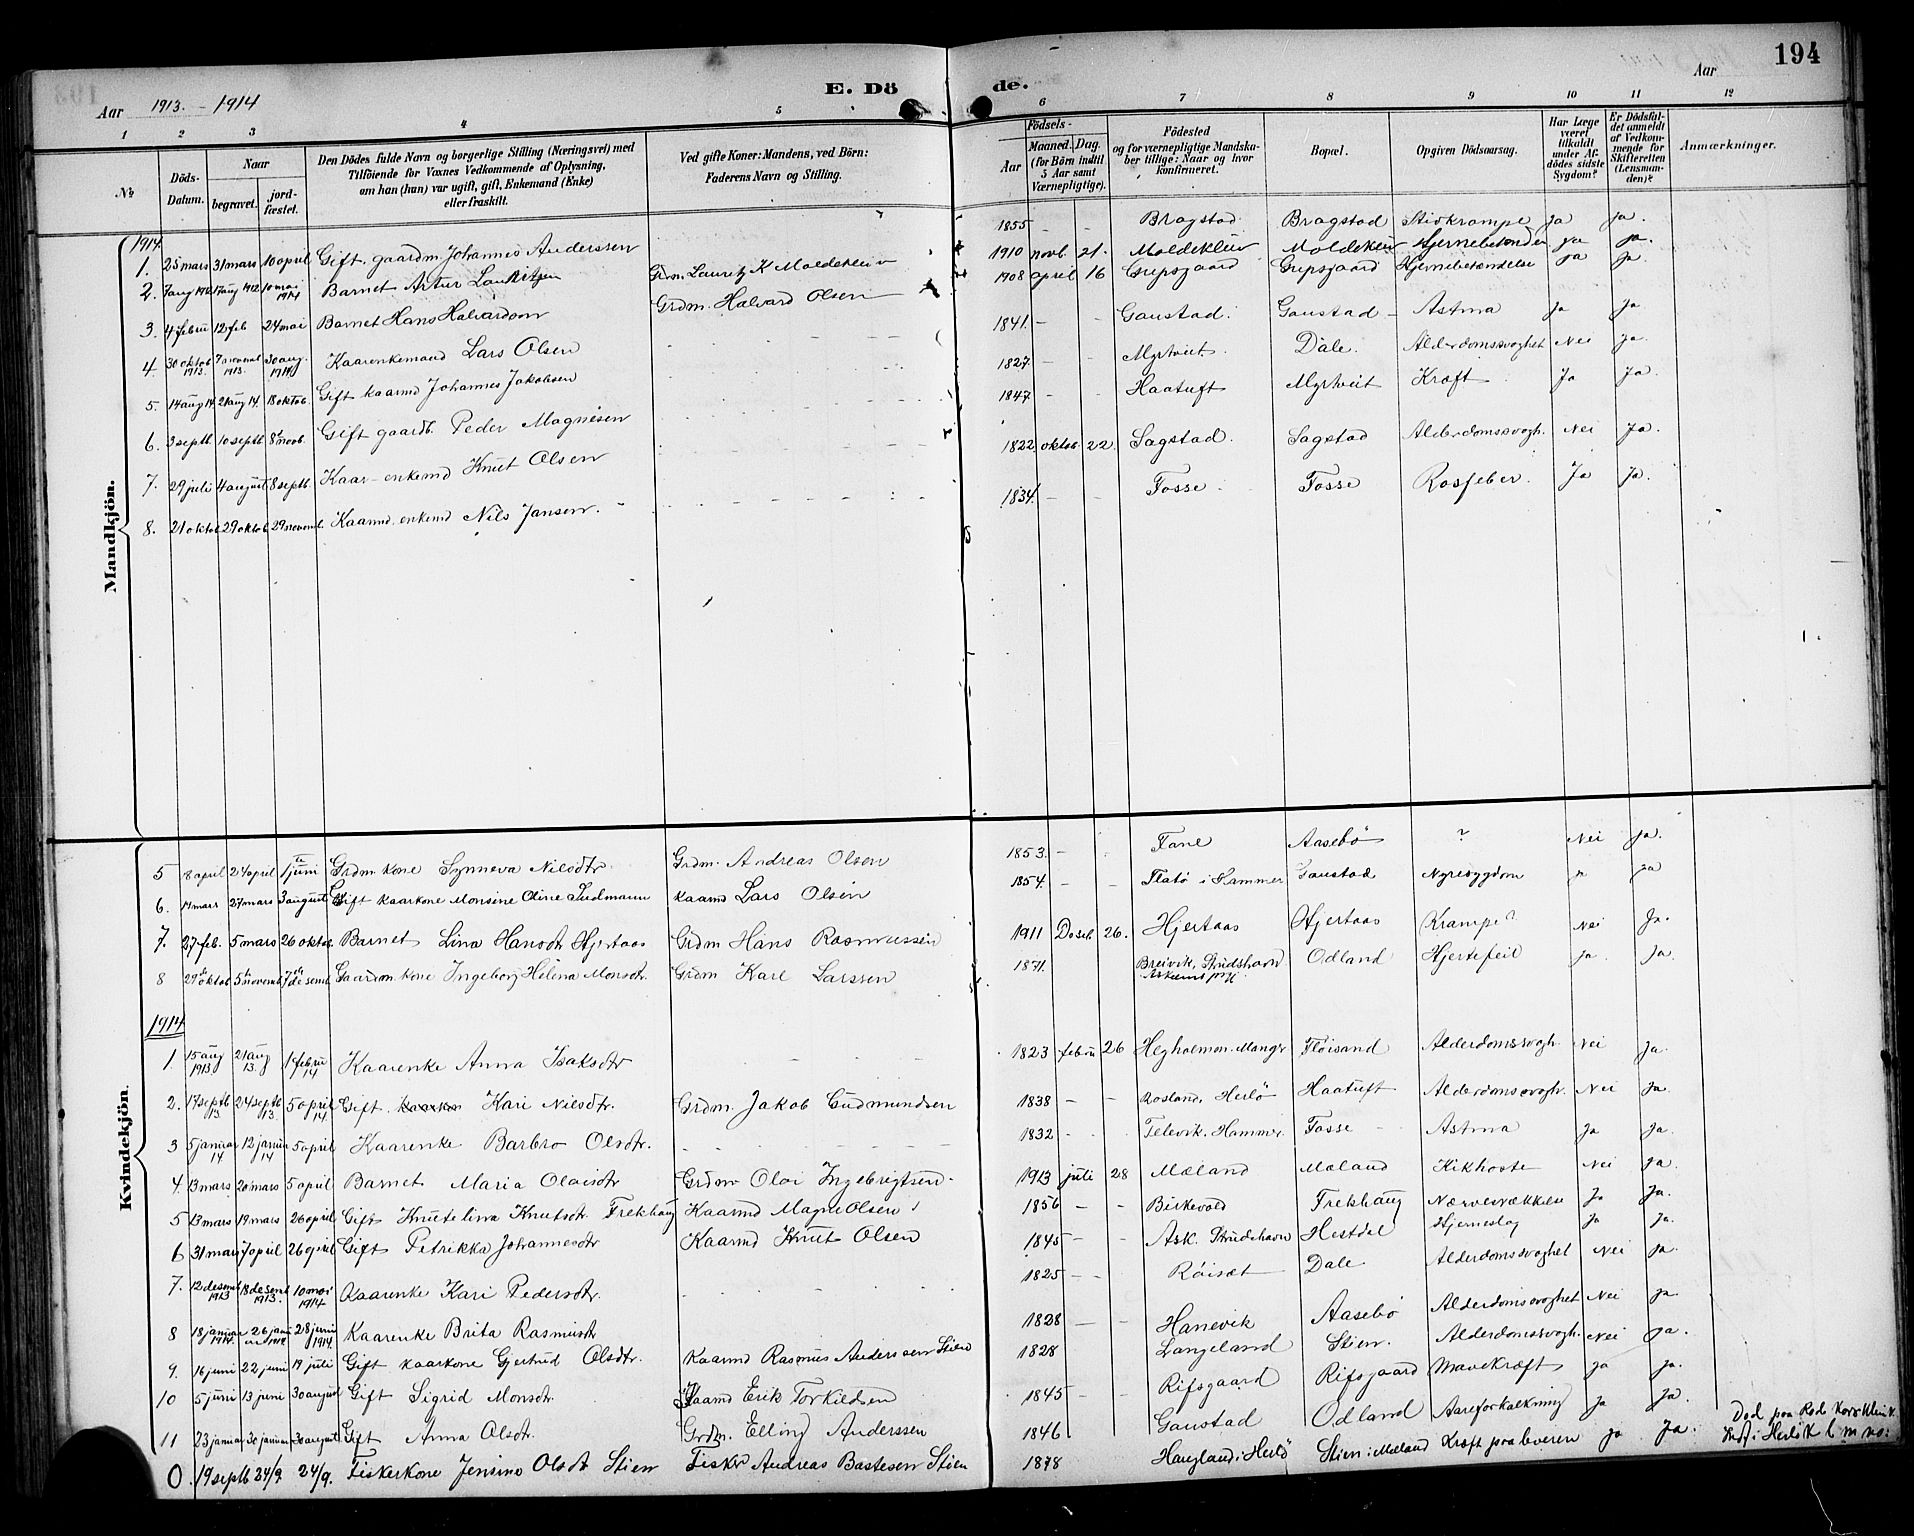 194
Aar 1913. - 1914
E. Döde.
Aar
1 2 3 4 5 6 7 8 9 10 11 12
No
Döds-Datum.
Naar begravet. jordfæstet.
Den Dödes fulde Navn og borgerlige Stilling (Næringsvei) med Tilföiende for Voxnes Vedkommende af Oplysning, om han (hun) var ugift, gift, Enkemand (Enke) eller fraskilt.
Ved gifte Koner: Mandens, ved Börn: Faderens Navn og Stilling.
Födsels- Aar Maaned. Dag. (for Börn indtil 5 Aar samt Værnepligtige).
Födested og for værnepligtige Mandskaber tillige: Naar og hvor konfirmeret.
Bopæl.
Opgiven Dödsaarsag.
Har Læge været tilkaldt under Afdödes sidste Sygdom?
Er Dödsfaldet anmeldt af Vedkommende for Skifteretten (Lensmanden)?
Anmærkninger.
Mandkjön.
1914.
1. 25 mars 31 mars 10 april Gift gaardm Johannes Anderssen 1855 - - Bragstad Bragstad Stivkrampe ja ja.
2. 7 aug 1912 17 aug 1912 10 mai 1914 Barnet Artur Lauritzen Grdm. Lauritz K Moldekleiv 1910 novb. 21. Moldekleiv Moldekleiv Hjernebetænder ja ja.
3. 4 febru 12 feb 24 mai Barnet Hans Halvardson Grdm. Halvard Olsen 1908 april 16 Gripsgaard Gripsgaard Hjernebetændelse ja ja.
4. 30 oktob 1913. 7 novembl 1913. 30 aug. 1914 Kaarenkemand Lars Olsen 1841. - - Gaustad. Gaustad - Astma Ja Ja
5. 14 aug 14. 21 aug 14. 18 oktob. Gift kaarmd Johannes Jakobsen 1827. - - Myrtveit. Dale. Alderdomssvaghet Nei ja.
6. 3 septb. 10 septb 8 novb. Gift gaardb. Peder Magnesen 1847 - - Haatuft Myrtveit Kræft Ja Ja.
7. 29 juli 4 august 8 septb. Kaar-enkemd Knut Olsen 1822 oktob. 22. Sagstad. Sagstad Alderdomssvagh. Nei Ja.
8. 21 oktob 29 oktob 29 novemb. Kaarmd. enkemd Nils Jansen. 1834. - - Fosse Fosse Rosfeber. Ja Ja.
Kvindekjön
5 8 april 24 april 1 juni Grdm. kone Synneva Nilsdtr. Grdm. Andreas Olsen 1853. - Fane Aasebø ? Nei ja.
6. 17 mars 27 mars 3 august Gift kaarkone Monsine Oline Ludmann Kaarmd Lars Olsen 1854. - - Flatø i Hammer Gaustad Nyresygdom ja ja
7. 27 feb. 5 mars 26 oktob. Barnet Lina Hansdtr Hjertaas Grdm Hans Rasmussen 1911 Desb. 26. Hjertaas Hjertaas Krampe? Nei Ja.
8 29 oktob 5 novemb 7 desemb. Gaardm. kone Ingeborg Helena Monsdtr. Grdm Karl Larssen 1871. Breivik, Strudshavn Askøens prgj. Odland Hjertefeil ja. Ja.
1914
1. 15 aug 1913. 21 aug 13. 1 febru 14 Kaarenke Anna Isaksdtr 1823 febru 26 Hegholmen. Manger Fløisand Alderdomssvagh. Nei Ja.
2. 17 septb 13. 24 septb 13. 5 april 14 Gift. Kari Nilsdtr. Grdm. Jakob Gudmundsen 1838 - - Rosland, Herlø Haatuft Alderdomssvagh. Nei Ja.
3 5 januar 14 12 janua 14 5 april Kaarenke Barbro Olsdtr. 1832 - - Tellevik. Hammer. Fosse - Astma ja Ja.
4. 13 mars 20 mars 5 april Barnet Maria Olaisdtr Grdm Olai Ingebrigtsen. 1913 juli 28 Mæland Mæland Kikhoste Nei ja.
5 13 mars 19 mars 26 april Gift Knutelina Knutsdtr. Frekhaug Kaarmd Magne Olsen 1856 - - Birkevold Frekhaug Nervesvækkelse Ja Ja.
6 31 mars 7 april 26 april Gift Petrikka Johannesdtr Kaarmd Knut Olsen 1845 - - Ask. Strudshavn Hestdel Hjerneslag ja ja.
7. 12 desemb 1913 18 desemb 1913. 10 mai 1914. Kaarenke Kari Pedersdtr. 1825 - - Røiset Dale Alderdomssvaghet Nei ja.
8 18 januar 1914. 26 janu 1914. 28 juni 1914. Kaarenke Brita Rasmusdtr 1828 - - Hanevik Aasebø Alderdomssvaghet Nei ja.
9. 16 juni 22 juni 19 juli Gift kaarkone Gjertrud Olsdtr. Kaarmd Rasmus Anderssen Stien 1828 Langeland Stien. Alderdomssvagh. Nei ja.
10 5 juni 13 juni 30 august Gift Sigrid Monsdtr. Kaarmd Erik Torkildsen 1845 - - Rifsgaard Rifsgaard Mavekræft ja ja.
11 23 januar 30 januar 30 august Gift Anna Olsdtr. Grdm. Elling Anderssen 1846 Gaustad Odland Aareforkalkning Ja Ja.
0. 19 septb 24/9. 24/9. Fiskerkone Jensine Olsdtr Stien Fisker Andreas Bastesen Stien 1878 Haugland i Herlø Stien i Mæland Kræft paa leveren ja. Ja. Død paa Røde Kors Klinik.